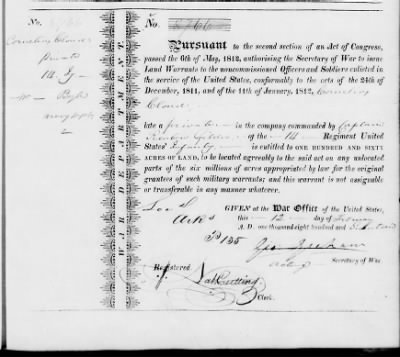 No.
Cornelius Clower
private
14. Ty
No. 8766
Pursuant to the second section of an Act of Congress,
passed the 6th of May, 1812, authorising the Secretary of War to issue
Land Warrants to the noncommissioned Officers and Soldiers enlisted in
the service of the United States, conformably to the acts of the 24th of
December, 1811, and of the 11th of January, 1812, Cornelius
Clower
late a private in the company commanded by Captain
of the 14 Regiment United
States' Infantry is entitled to ONE HUNDRED AND SIXTY
ACRES OF LAND, to be located agreeably to the said act on any unlocated
parts of the six millions of acres appropriated by law for the original
grantees of such military warrants; and this warrant is not assignable
or transferable in any manner whatever.
GIVEN at the War Office of the United States,
this 12 day of
A. D. one thousand eight hundred and
Ark
135
Geo Graham
Acting Secretary of War
Registered
Nat Cutting
Clerk.
WAR DEPARTMENT.